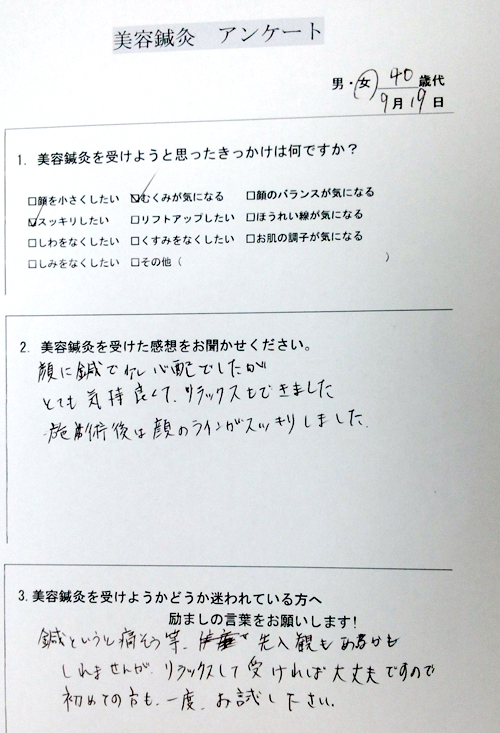 美容鍼灸 アンケート
男・女 40 歳代
9月19日
1. 美容鍼灸を受けようと思ったきっかけは何ですか？
□顔を小さくしたい ☑むくみが気になる □顔のバランスが気になる
☑スッキリしたい □リフトアップしたい □ほうれい線が気になる
□しわをなくしたい □くすみをなくしたい □お肌の調子が気になる
□しみをなくしたい □その他（ ）
2. 美容鍼灸を受けた感想をお聞かせください。
顔に鍼で少し心配でしたが
とても気持良くて、リラックスもできました
施術後は顔のラインがスッキリしました。
3. 美容鍼灸を受けようかどうか迷われている方へ
励ましの言葉をお願いします！
鍼というと痛そう等、先入観もあるかも
しれませんが、リラックスして受ければ大丈夫ですので
初めての方も、一度、お試し下さい。